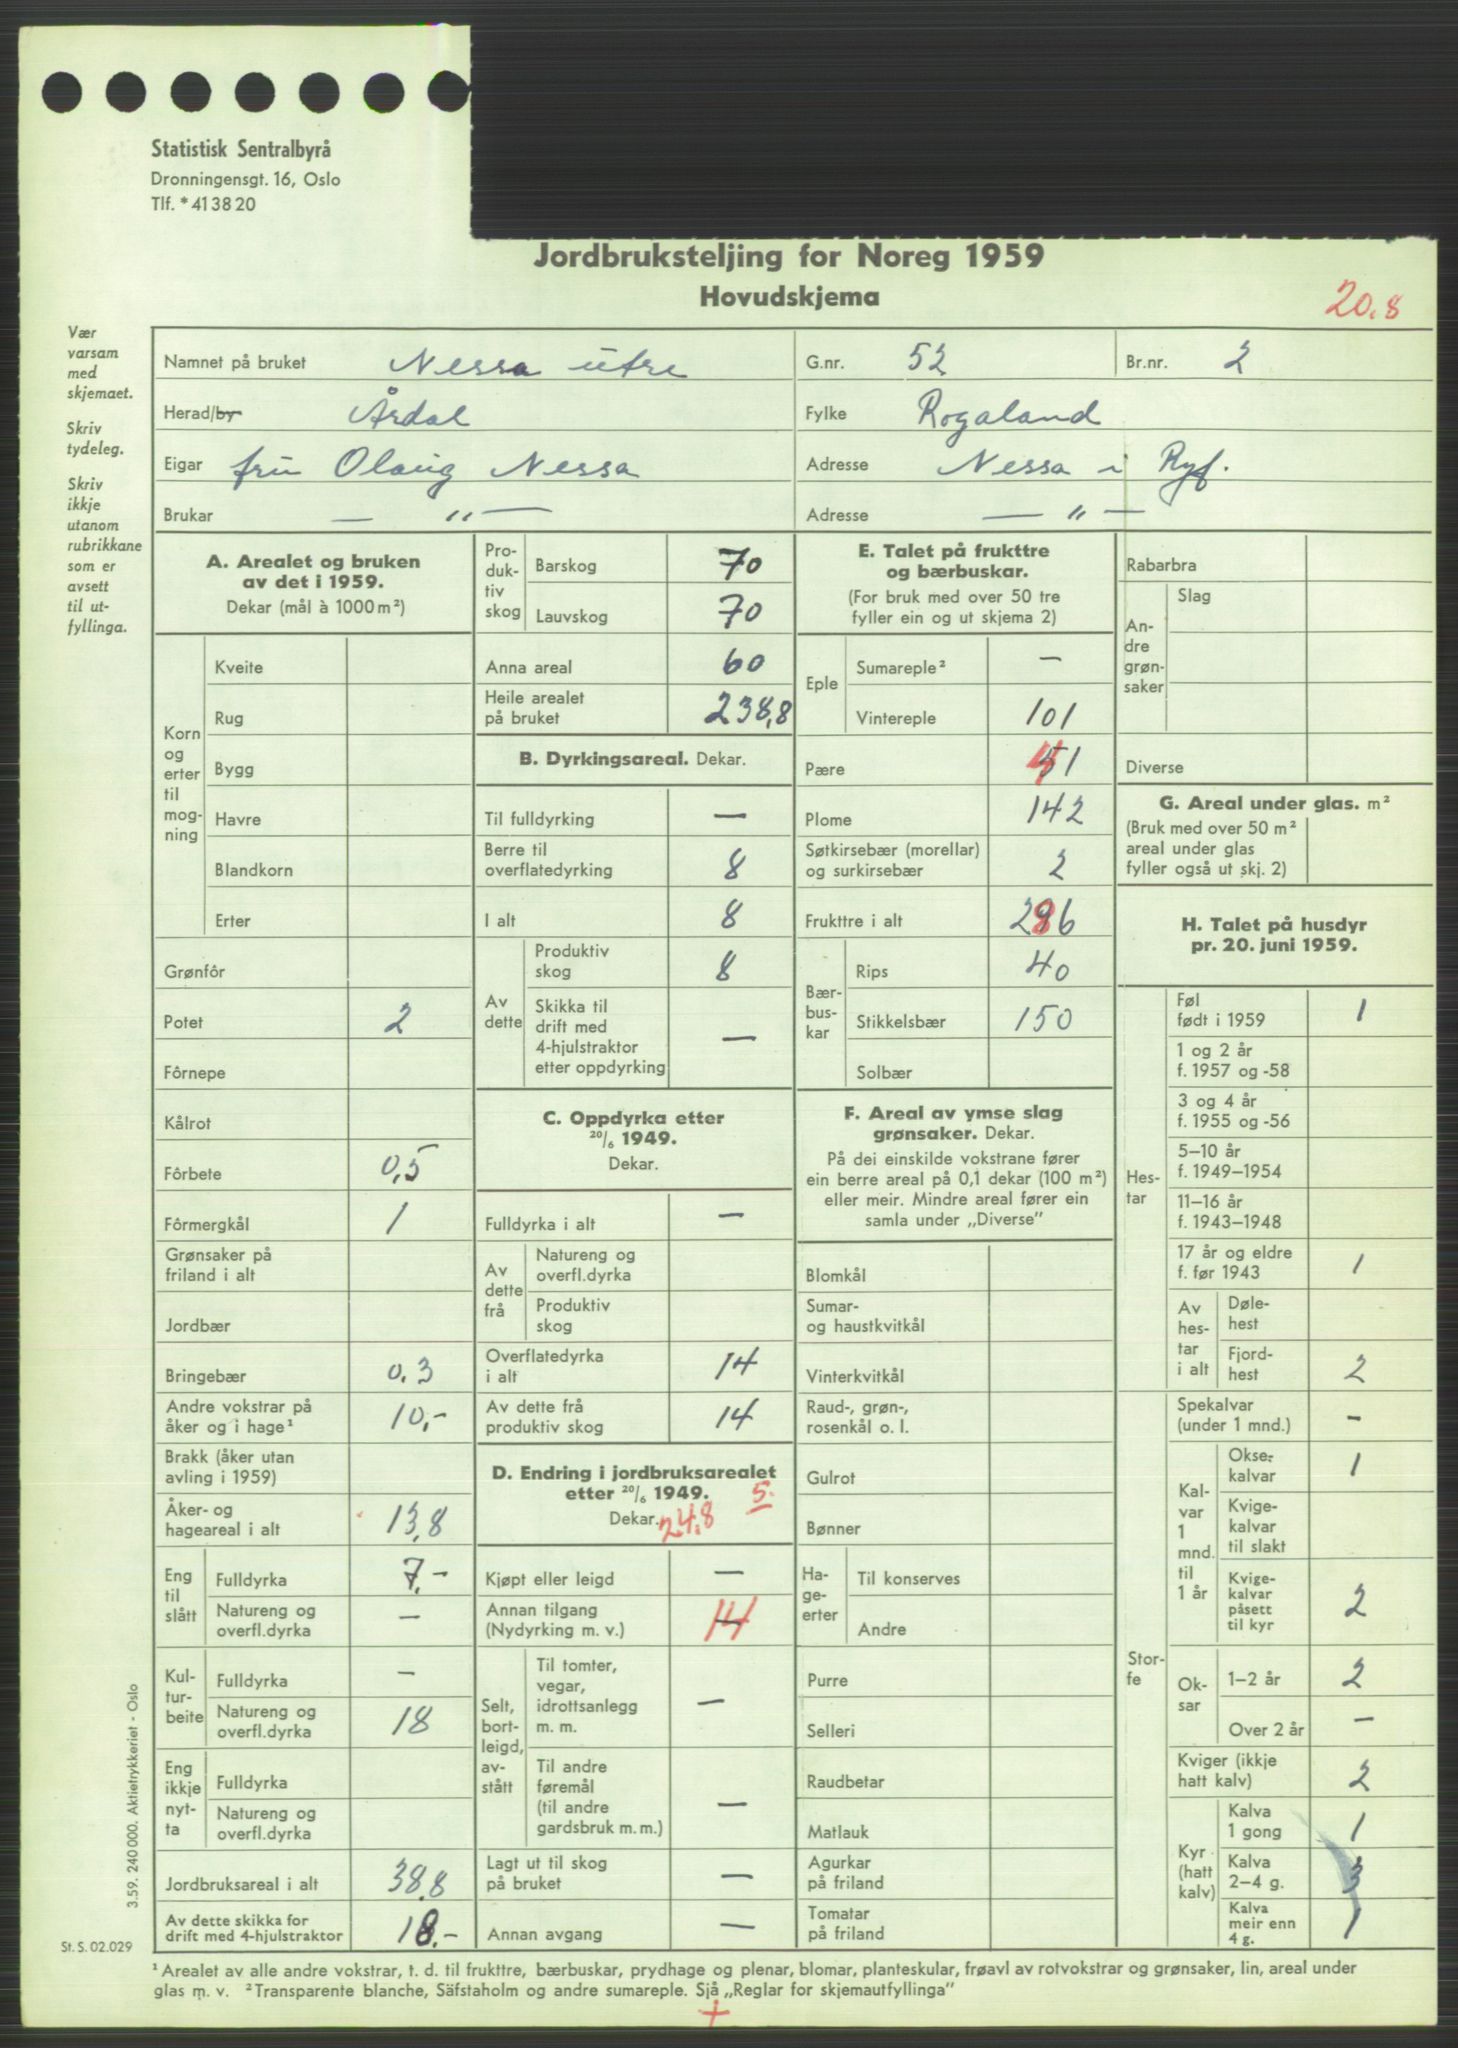 Statistisk Sentralbyrå
Dronningensgt. 16, Oslo
Tlf. *41 38 20
Jordbruksteljing for Noreg 1959
Hovudskjema
20.8
Vær
varsam
med
skjemaet.
Skriv
tydeleg.
Skriv
ikkje
utanom
rubrikkane
som er
avsett
til ut-
fyllinga.
Namnet på bruket Nessa ütre G.nr. 52 Br.nr. 2
Herad/by Årdal Fylke Rogaland
Eigar fru Olaug Nessa Adresse Nessa i Ryf.
Brukar — „ — Adresse — „ —
A. Arealet og bruken
av det i 1959.
Dekar (mål à 1000 m²)
Korn
og
erter
til
mog-
ning
Kveite
Rug
Bygg
Havre
Blandkorn
Erter
Grønfôr
Potet 2
Fôrnepe
Kålrot
Fôrbete 0,5
Fôrmergkål 1
Grønsaker på
friland i alt
Jordbær
Bringebær 0.3
Andre vokstrar på
åker og i hage¹ 10,-
Brakk (åker utan
avling i 1959)
Åker- og
hageareal i alt 13,8
Eng
til
slått
Fulldyrka 7.-
Natureng og
overfl.dyrka —
Kul-
tur-
beite
Fulldyrka —
Natureng og
overfl.dyrka 18
Eng
ikkje
nyt-
ta
Fulldyrka
Natureng og
overfl.dyrka
Jordbruksareal i alt 38.8
Av dette skikka for
drift med 4-hjulstraktor 18.-
Pro-
duk-
tiv
skog
Barskog 70
Lauvskog 70
Anna areal 60
Heile arealet
på bruket 238,8
B. Dyrkingsareal. Dekar.
Til fulldyrking —
Berre til
overflatedyrking 8
I alt 8
Av
dette
Produktiv
skog 8
Skikka til
drift med
4-hjulstraktor
etter oppdyrking —
C. Oppdyrka etter
20/6 1949.
Dekar.
Fulldyrka i alt —
Av
dette
frå
Natureng og
overfl.dyrka
Produktiv
skog
Overflatedyrka
i alt 14
Av dette frå
produktiv skog 14
D. Endring i jordbruksarealet
etter 20/6 1949. 5.
Dekar. 24.8
Kjøpt eller leigd —
Annan tilgang
(Nydyrking m. v.) 14
Selt,
bort-
leigd,
av-
stått
Til tomter,
vegar,
idrottsanlegg
m. m. —
Til andre
føremål
(til andre
gardsbruk m. m.) —
Lagt ut til skog
på bruket —
Annan avgang —
E. Talet på frukttre
og bærbuskar.
(For bruk med over 50 tre
fyller ein og ut skjema 2)
Eple
Sumareple² —
Vintereple 101
Pære 41
Plome 142
Søtkirsebær (morellar)
og surkirsebær 2
Frukttre i alt 286
Bær-
bus-
kar
Rips 40
Stikkelsbær 150
Solbær
F. Areal av ymse slag
grønsaker. Dekar.
På dei einskilde vokstrane fører
ein berre areal på 0,1 dekar (100 m²)
eller meir. Mindre areal fører ein
samla under „Diverse”
Blomkål
Sumar-
og haustkvitkål
Vinterkvitkål
Raud-, grøn-,
rosenkål o. l.
Gulrot
Bønner
Ha-
ge-
erter
Til konserves
Andre
Purre
Selleri
Raudbetar
Matlauk
Agurkar
på friland
Tomatar
på friland
Rabarbra
An-
dre
grøn-
saker
Slag
Diverse
G. Areal under glas. m²
(Bruk med over 50 m²
areal under glas
fyller også ut skj. 2)
H. Talet på husdyr
pr. 20. juni 1959.
Hes-
tar
Føl
født i 1959 1
1 og 2 år
f. 1957 og -58
3 og 4 år
f. 1955 og -56
5–10 år
f. 1949–1954
11–16 år
f. 1943–1948
17 år og eldre
f. før 1943 1
Av
hes-
tar
i alt
Døle-
hest
Fjord-
hest 2
Stor-
fe
Spekalvar
(under 1 mnd.) —
Kal-
var
1
mnd.
til
1 år
Okse-
kalvar 1
Kvige-
kalvar
til slakt
Kvige-
kalvar
påsett
til kyr 2
Ok-
sar
1–2 år 2
Over 2 år —
Kviger (ikkje
hatt kalv) 2
Kyr
(hatt
kalv)
Kalva
1 gong 1
Kalva
2–4 g. 3
Kalva
meir enn
4 g. 1
3.59. 240 000. Aktietrykkeriet - Oslo
St. S. 02.029
¹ Arealet av alle andre vokstrar, t. d. til frukttre, bærbuskar, prydhage og plenar, blomar, planteskular, frøavl av rotvokstrar og grønsaker, lin, areal under
glas m. v. ² Transparente blanche, Säfstaholm og andre sumareple. Sjå „Reglar for skjemautfyllinga”
+